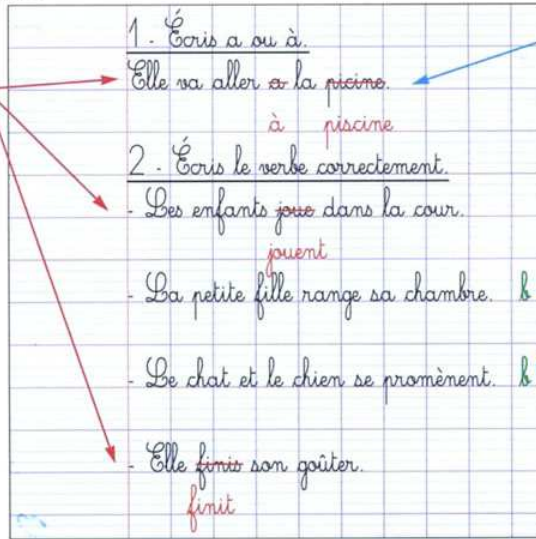 1 - Écris a ou à.
Elle va aller a la picine.
à piscine
2 - Écris le verbe correctement.
- Les enfants joue dans la cour.
jouent
- La petite fille range sa chambre. b
- Le chat et le chien se promènent. b
- Elle finis son goûter.
finit